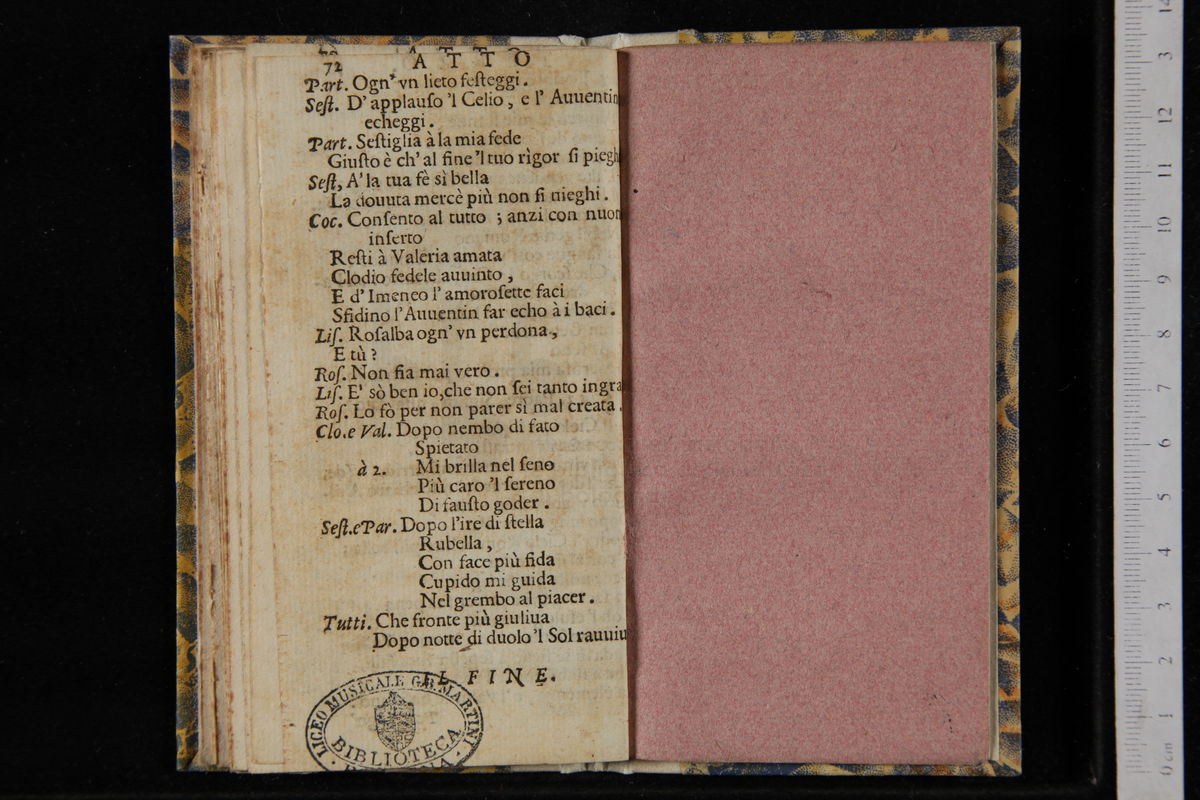 72 ATTO
Part. Ogn' vn lieto feſteggi.
Seſt. D' applauſo 'l Celio, e l' Auuentin
echeggi.
Part. Seſtiglia à la mia fede
Giuſto è ch' al fine 'l tuo rìgor ſi piegh
Seſt, A' la tua fè sì bella
La douuta mercè più non ſi nieghi.
Coc. Conſento al tutto; anzi con nuou
inſerto
Reſti à Valeria amata
Clodio fedele auuinto,
E d' Imeneo l' amoroſette faci
Sfidino l'Auuentin far echo à i baci.
Liſ. Roſalba ogn' vn perdona,
E tù?
Roſ. Non fia mai vero.
Liſ. E' sò ben io, che non ſei tanto ingra
Roſ. Lo fò per non parer sì mal creata.
Clo. e Val. Dopo nembo di fato
Spietato
à 2. Mi brilla nel ſeno
Più caro 'l ſereno
Di fauſto goder.
Seſt. e Par. Dopo l'ire di ſtella
Rubella,
Con face più fida
Cupido mi guida
Nel grembo al piacer.
Tutti. Che fronte più giuliua
Dopo notte di duolo 'l Sol rauuiu
IL FINE.
LICEO MUSICALE G.B. MARTINI
BIBLIOTECA
0 cm 1 2 3 4 5 6 7 8 9 10 11 12 13 14